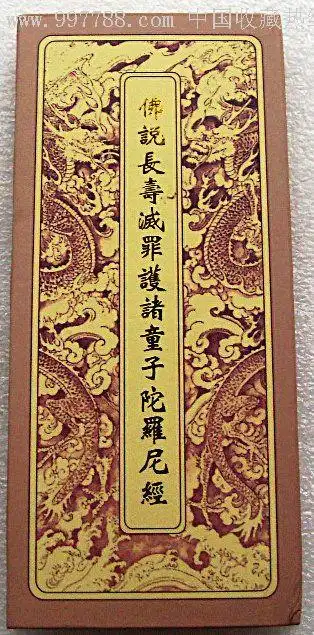 www.997788.com 中国收藏热线
佛説長壽滅罪護諸童子陀羅尼經